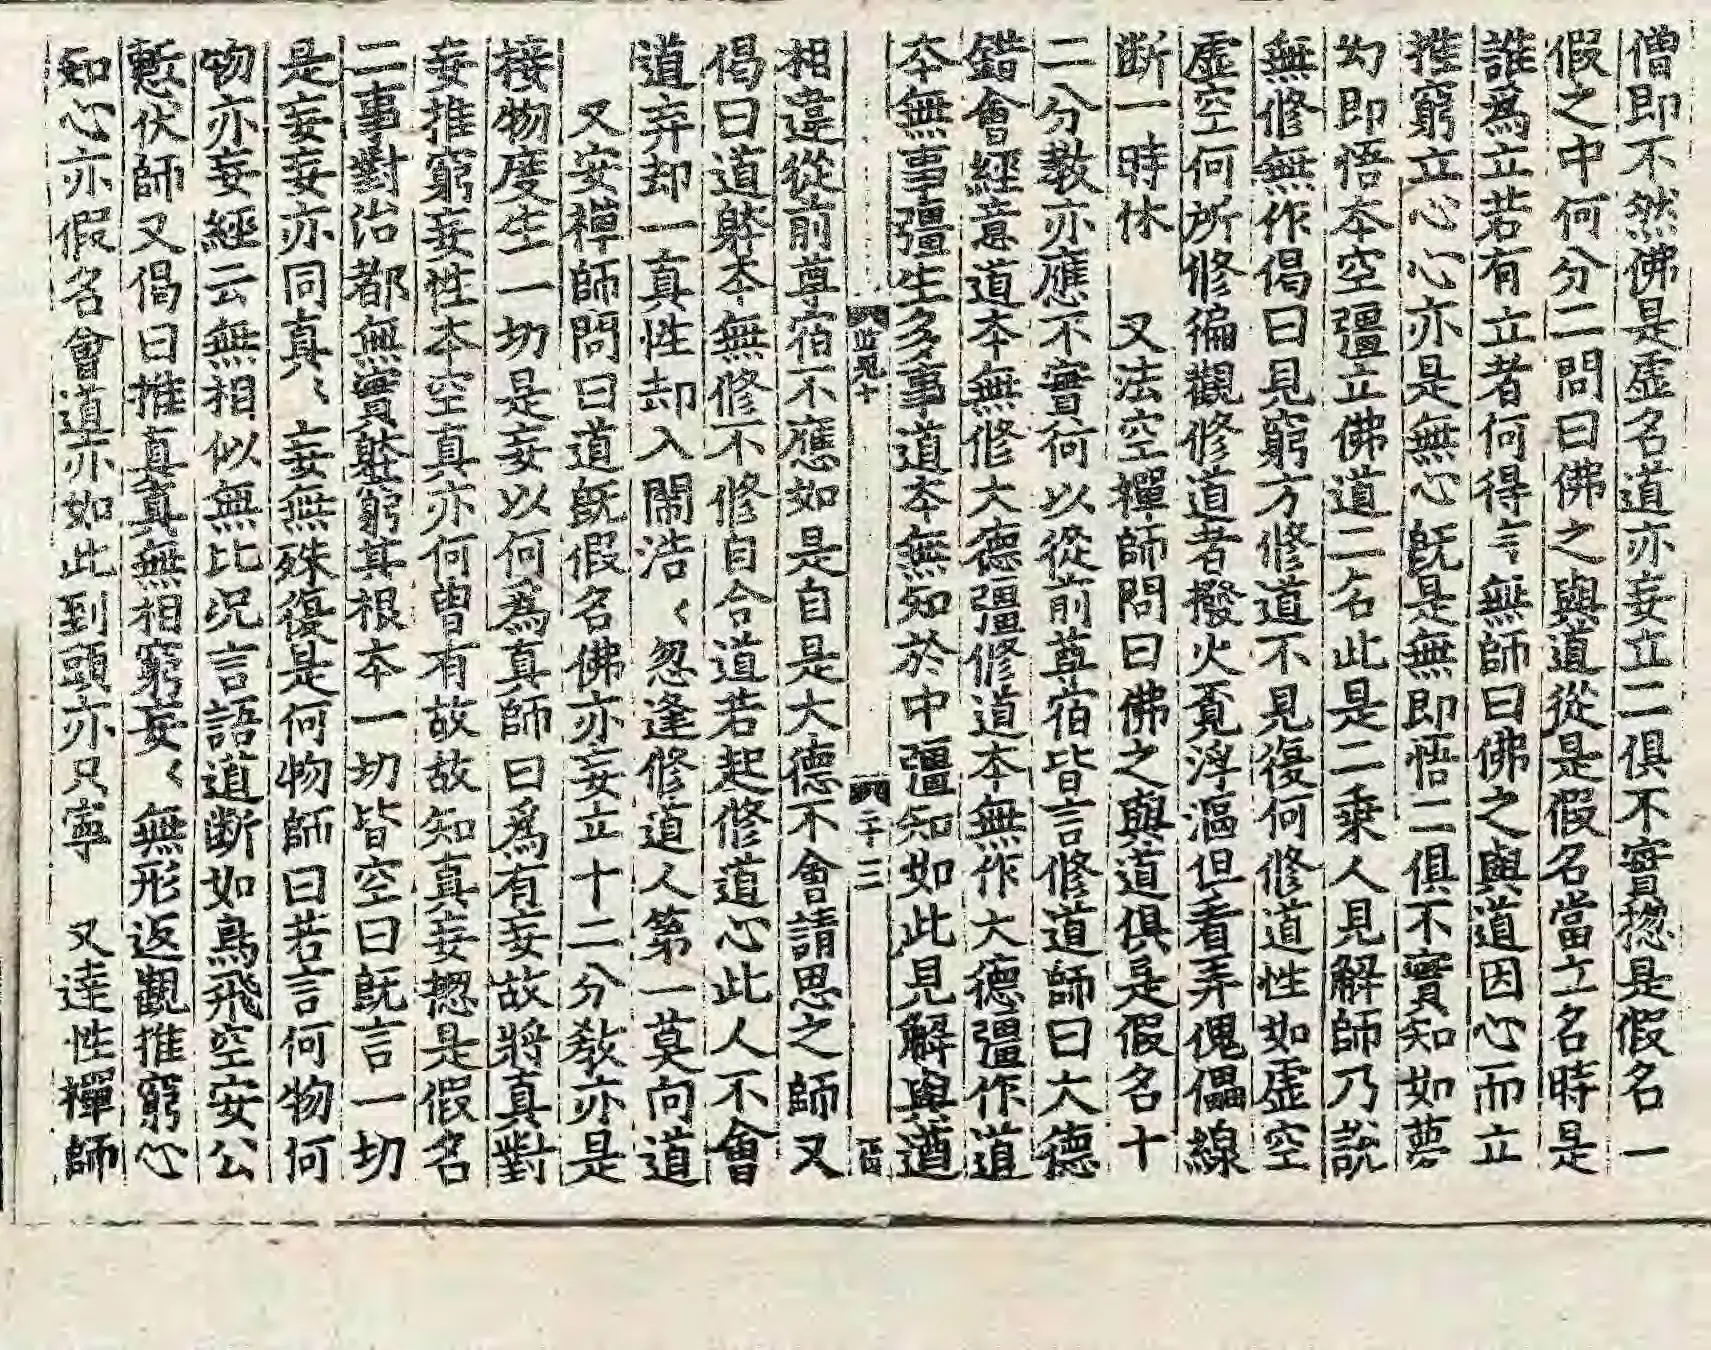 僧即不然佛是虛名道亦妄立二俱不實揔是假名一
假之中何分二問曰佛之與道從是假名當立名時是
誰爲立若有立者何得言無師曰佛之與道因心而立
推窮立心心亦是無心旣是無即悟二俱不實知如夢
幻即悟本空彊立佛道二名此是二乗人見解師乃說
無修無作偈曰見窮方修道不見復何修道性如虛空
虛空何所修徧觀修道者撥火覔浮漚但看弄傀儡線
断一時休　又法空禪師問曰佛之與道俱是假名十
二分教亦應不實何以從前尊宿皆言修道師曰大德
錯會經意道本無修大德彊修道本無作大德彊作道
本無事彊生多事道本無知於中彊知如此見解與道
二十三
相違從前尊宿不應如是自是大德不會請思之師又
偈曰道躰本無修不修自合道若起修道心此人不會
道弃却一真性却入閙浩〻忽逢修道人第一莫向道
又安禪師問曰道旣假名佛亦妄立十二分敎亦是
接物度生一切是妄以何爲真師曰爲有妄故將真對
妄推窮妄性本空真亦何曾有故故知真妄揔是假名
二事對治都無實躰窮其根本一切皆空曰旣言一切
是妄妄亦同真〻妄無殊復是何物師曰若言何物何
物亦妄經云無相似無比况言語道断如鳥飛空安公
慙伏師又偈曰推真真無相窮妄〻無形返觀推窮心
知心亦假名會道亦如此到頭亦只寧　又達性禪師